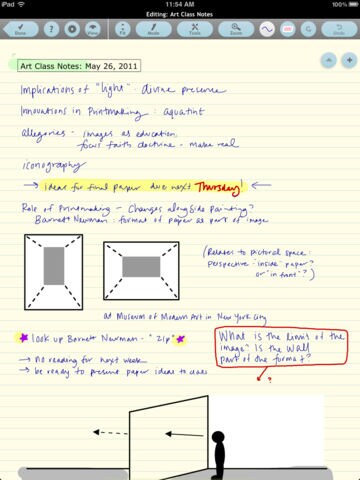 iPad
11:54 AM
100%
Editing: Art Class Notes
Done
View
Pen
Mode
Tools
Undo
Art Class Notes: May 26, 2011
Implications of "light" - divine presence
Innovations in Printmaking : aquatint
Allegories - images as education,
focus faith doctrine - make real
iconography
→ ideas for final paper due next Thursday! ←
Role of Printmaking - Changes alongside Painting?
Barnett Newman : format of paper as part of image
(Relates to pictorial space:
perspective - "inside" paper?
or "in front"?)
at Museum of Modern Art in New York City
★ look up Barnett Newman - "zip" ★
→ no reading for next week
→ be ready to present paper ideas to class
What is the limit of the
image? Is the wall
part of the format?
?